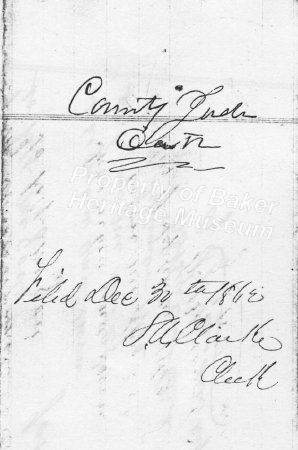 County Judge
Oath
Property of Baker
Heritage Museum
Filed Dec 30th 1862
S.A. Clarke
Clerk